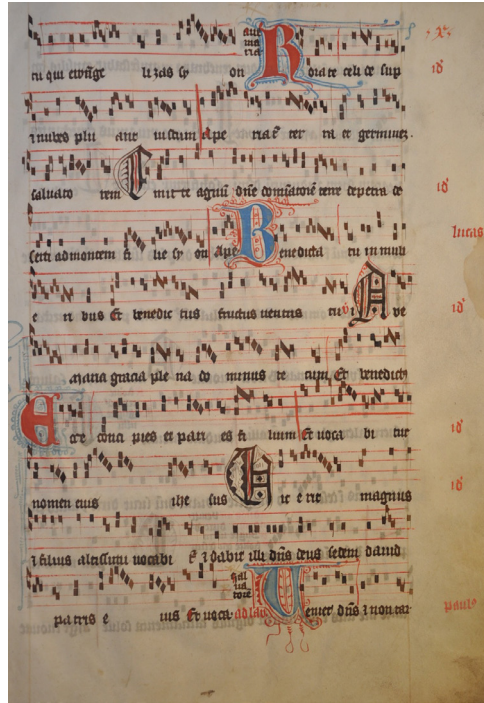 aue
ma
ria
qui li zas sy on Rorate celi de sup
id'
pluant iustum Ape ria t' ter ra et germinet.
saluato rem Emitte agnū dn̄e ter re de petra de
id'
serti ad montem fi lie sy on Ape Benedicta tu in muli
lucas
e ri bus Et benedic tus fructus uentris tui v̄ Ave
id'
maria gracia ple na do minus te cum Et benedicta
Ecce conci pies et pari es fi lium Et uoca bi tur
id'
nomen eius ihe sus Hic e rit magnus
id'
⁊ filius altissimi uocabi t' ⁊ dabit illi dn̄s deus sedem dauid
sal
ua
patris e ius Et uoca Veniet dn̄s ⁊ non tar
paulo